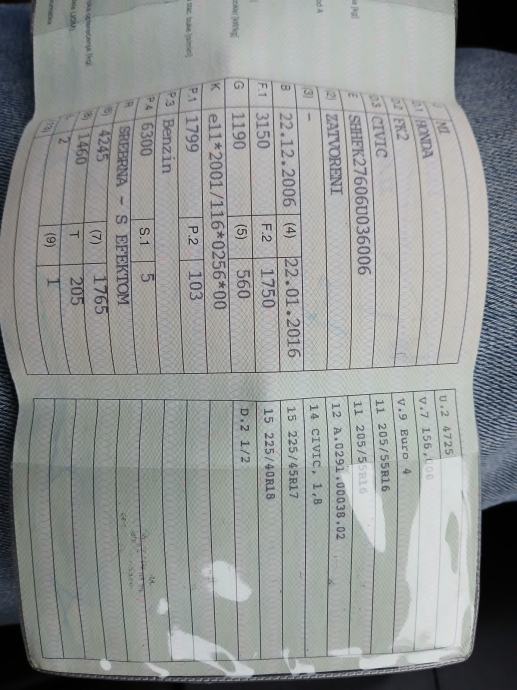 J M1
D.1 HONDA
D.2 FK2
D.3 CIVIC
E SHHFK27606U036006
(2) ZATVORENI
(3) –
B 22.12.2006 (4) 22.01.2016
F.1 3150 F.2 1750
G 1190 (5) 560
K e11*2001/116*0256*00
P.1 1799 P.2 103
P.3 Benzin
P.4 6300 S.1 5
R SREBRNA - S EFEKTOM
(6) 4245 (7) 1765
(8) 1460 T 205
L 2 (9) 1
U.2 4725
V.7 156,000
V.9 Euro 4
11 205/55R16
11 205/55R16
12 A.0291.00038.02
14 CIVIC, 1,8
15 225/45R17
15 225/40R18
D.2 1/2